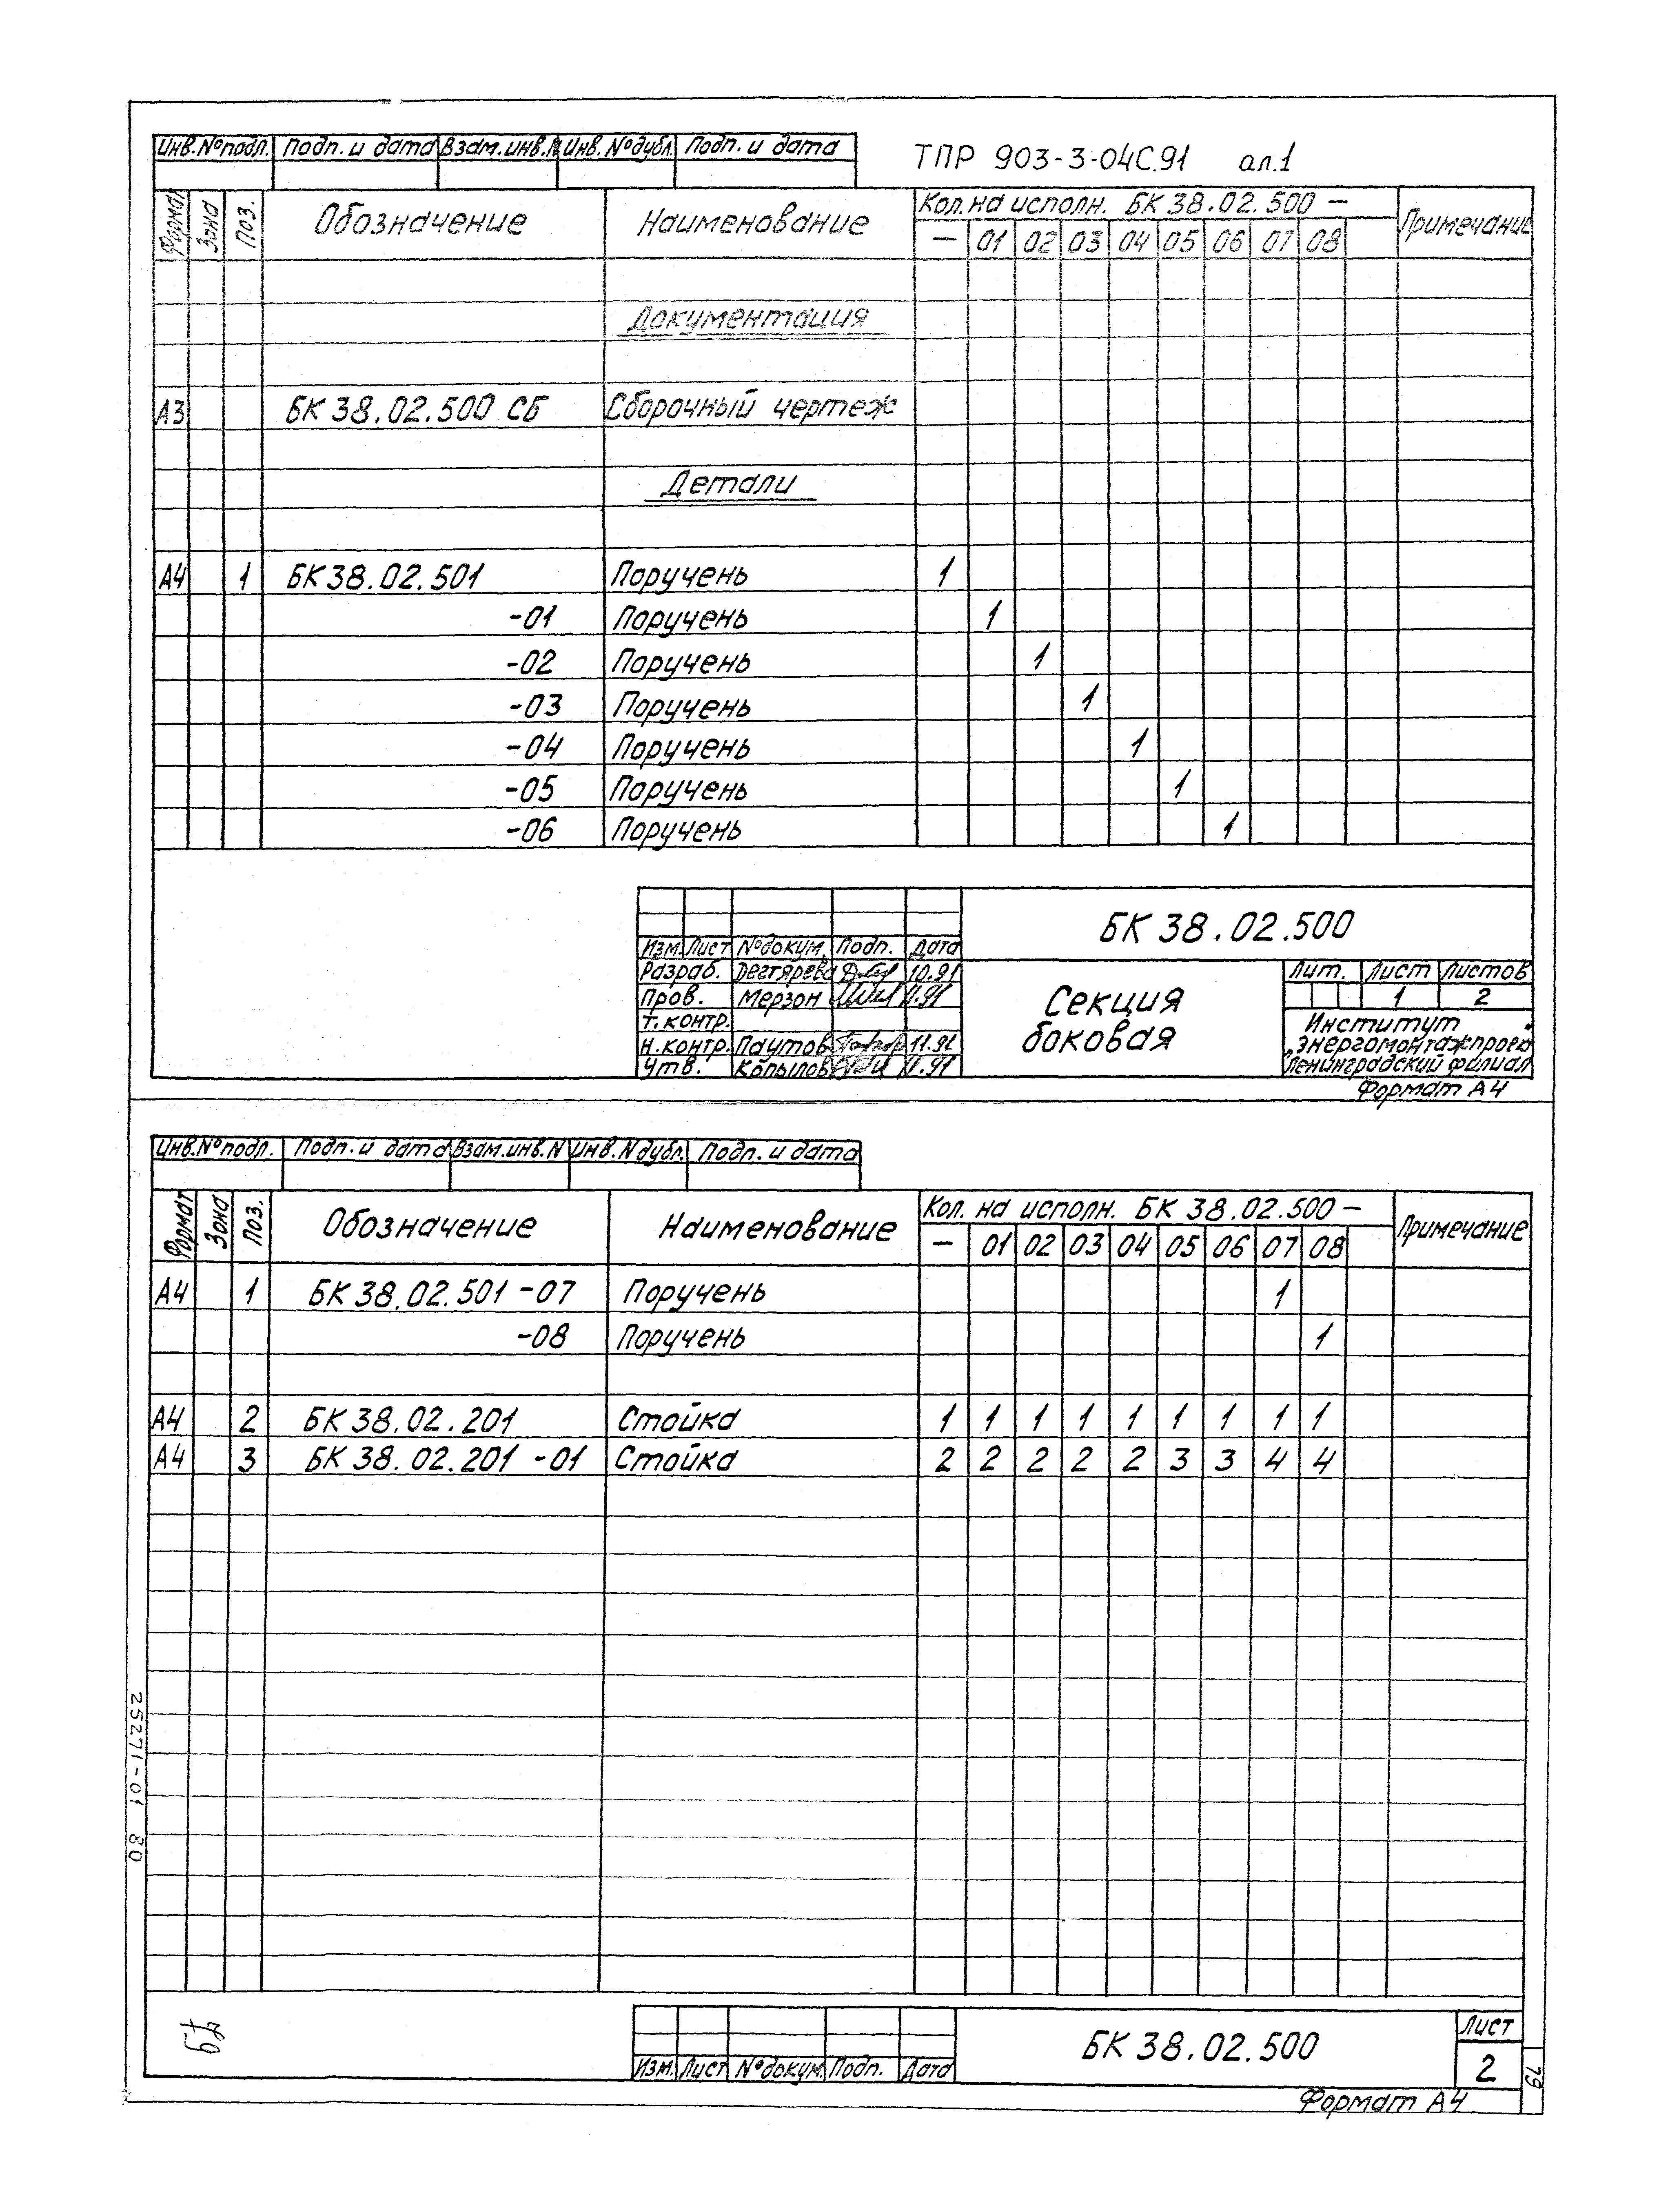 Инв.№подл. Подп. и дата Взам.инв.№ Инв.№дубл. Подп. и дата
ТПР 903-3-04С.91 ал.1
Формат Зона Поз. Обозначение Наименование Кол. на исполн. БК 38.02.500 — Примечание
— 01 02 03 04 05 06 07 08
Документация
А3 БК 38.02.500 СБ Сборочный чертеж
Детали
А4 1 БК 38.02.501 Поручень 1
-01 Поручень 1
-02 Поручень 1
-03 Поручень 1
-04 Поручень 1
-05 Поручень 1
-06 Поручень 1
БК 38.02.500
Изм. Лист №докум. Подп. Дата
Разраб. Дегтярева 10.91
Пров. Мерзон 11.91
Т.контр.
Н.контр. Паутов 11.91
Утв. Копылов 11.91
Секция
боковая
Лит. Лист Листов
1 2
Институт
„Энергомонтажпроект"
Ленинградский филиал
Формат А4
Инв.№подл. Подп. и дата Взам.инв.N Инв.N дубл. Подп. и дата
Формат Зона Поз. Обозначение Наименование Кол. на исполн. БК 38.02.500 — Примечание
— 01 02 03 04 05 06 07 08
А4 1 БК 38.02.501 -07 Поручень 1
-08 Поручень 1
А4 2 БК 38.02.201 Стойка 1 1 1 1 1 1 1 1 1
А4 3 БК 38.02.201 -01 Стойка 2 2 2 2 2 3 3 4 4
25271-01 80
Изм. Лист №докум. Подп. Дата
БК 38.02.500
Лист
2
79
Формат А4